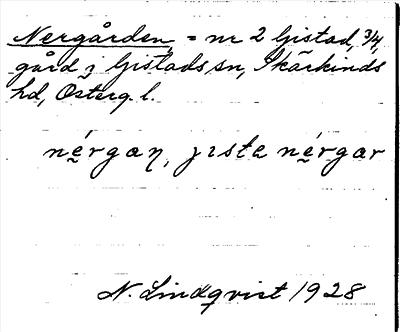 Nergården = nr 2 Gistad, 3/4,
gård i Gistads sn, Skärkinds
hd, Österg. l.
nę́rgaɳ, jɪsta nę́rgar
N. Lindqvist 1928